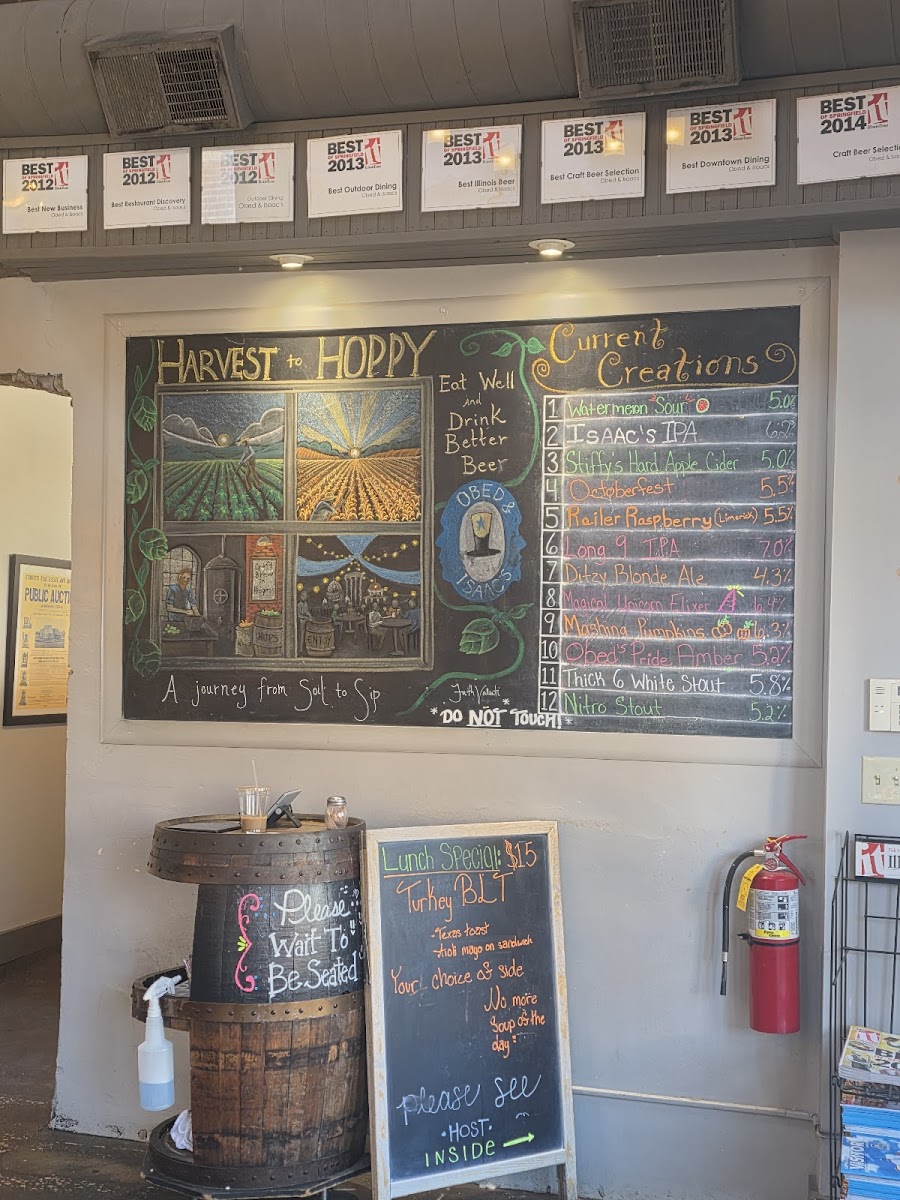 BEST
OF SPRINGFIELD
2012
Best New Business
Obed & Isaacs
BEST
OF SPRINGFIELD
2012
Best Restaurant Discovery
Obed & Isaacs
BEST
OF SPRINGFIELD
2012
Outdoor Dining
Obed & Isaacs
BEST
OF SPRINGFIELD
2013
Best Outdoor Dining
Obed & Isaacs
BEST
OF SPRINGFIELD
2013
Best Illinois Beer
Obed & Isaacs
BEST
OF SPRINGFIELD
2013
Best Craft Beer Selection
Obed & Isaacs
BEST
OF SPRINGFIELD
2013
Best Downtown Dining
Obed & Isaacs
BEST
OF SPRINGFIELD
2014
Craft Beer Selectio
Obed & Isaacs
HARVEST to HOPPY
Eat Well
and
Drink
Better
Beer
OBED &
ISAACS
HOPS
ENJOY
A journey from Soil to Sip
*DO NOT TOUCH!*
Current
Creations
1 Watermelon Sour 5.0%
2 ISAAC's IPA 6.2%
3 Stiffy's Hard Apple Cider 5.0%
4 Octoberfest 5.5%
5 Railer Raspberry (Limerick) 5.5%
6 Long 9 IPA 7.0%
7 Ditzy Blonde Ale 4.3%
8 Magical Unicorn Elixer
9 Mashing Pumpkins
10 Obed's Pride Amber 5.2%
11 Thick 6 White Stout 5.8%
12 Nitro Stout 5.2%
PUBLIC AUCT
Please
Wait To
Be Seated
Lunch Special: $15
Turkey BLT
-Texas toast
-Aioli mayo on sandwich
Your choice of side
No more
Soup of the
day
please see
·HOST·
INSIDE